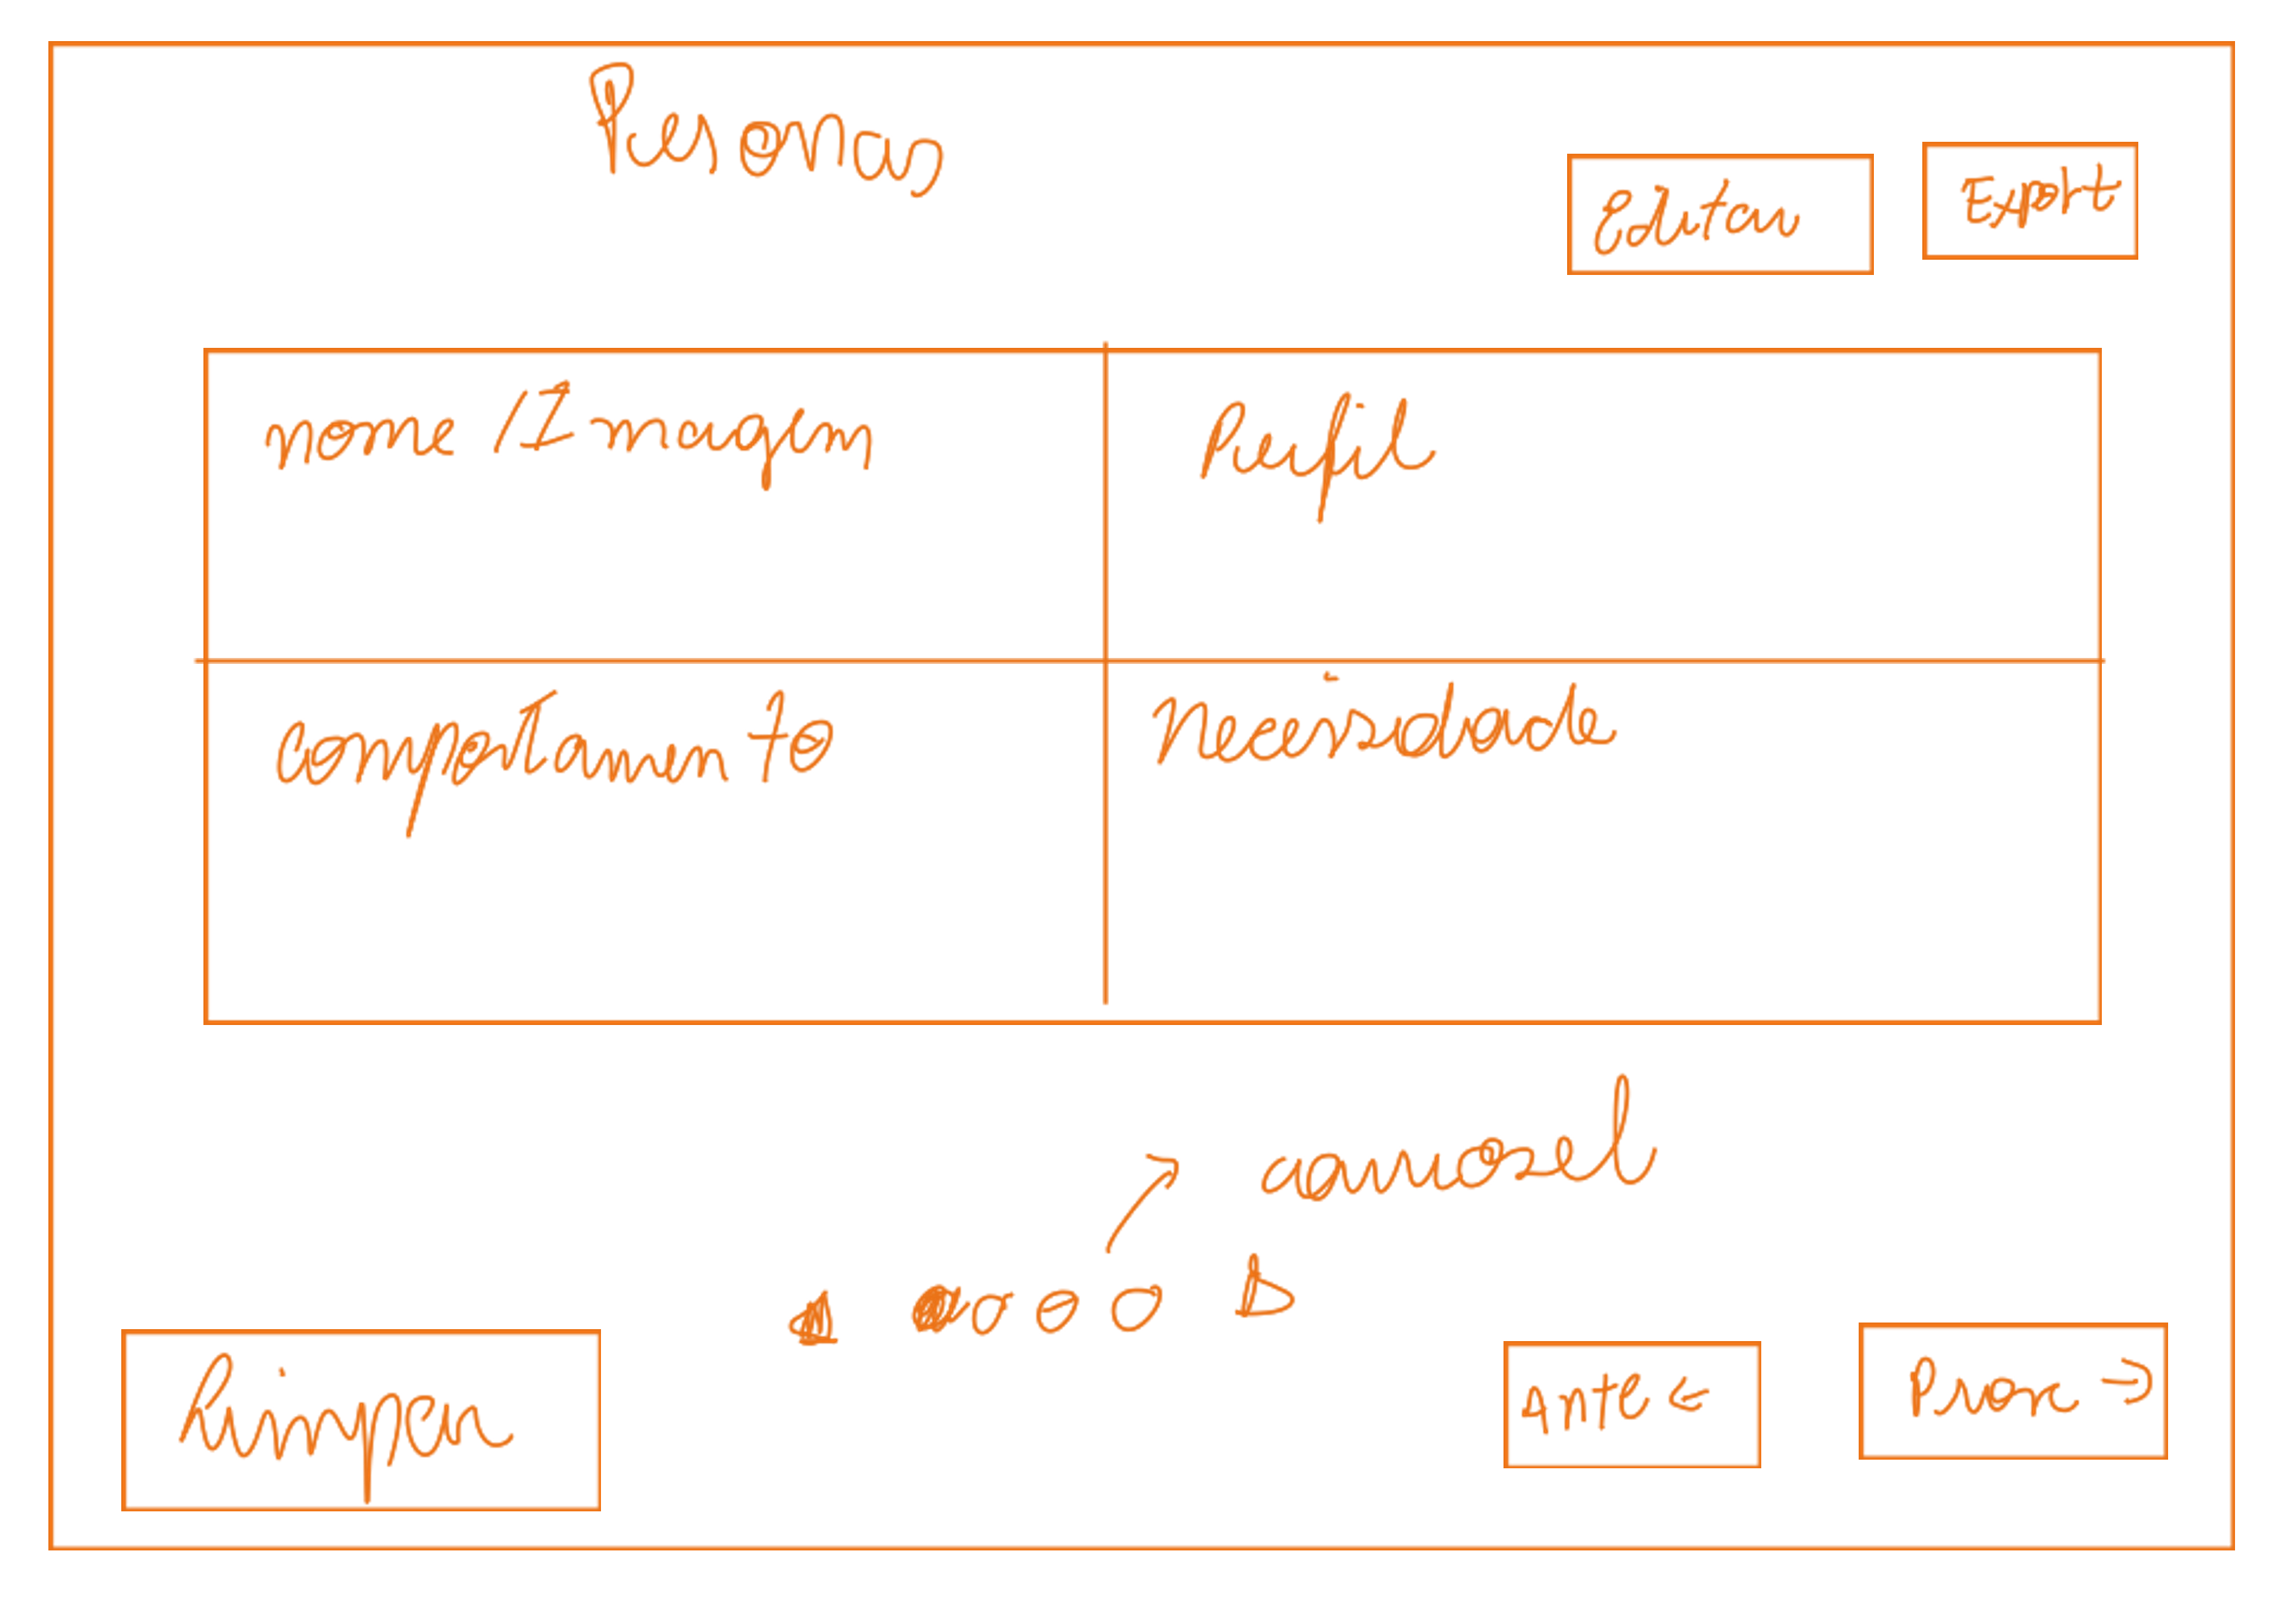 Personas
Editar
Export
nome / Imagem
Perfil
comportamento
Necessidade
carrossel
Limpar
Ante ←
Prox →